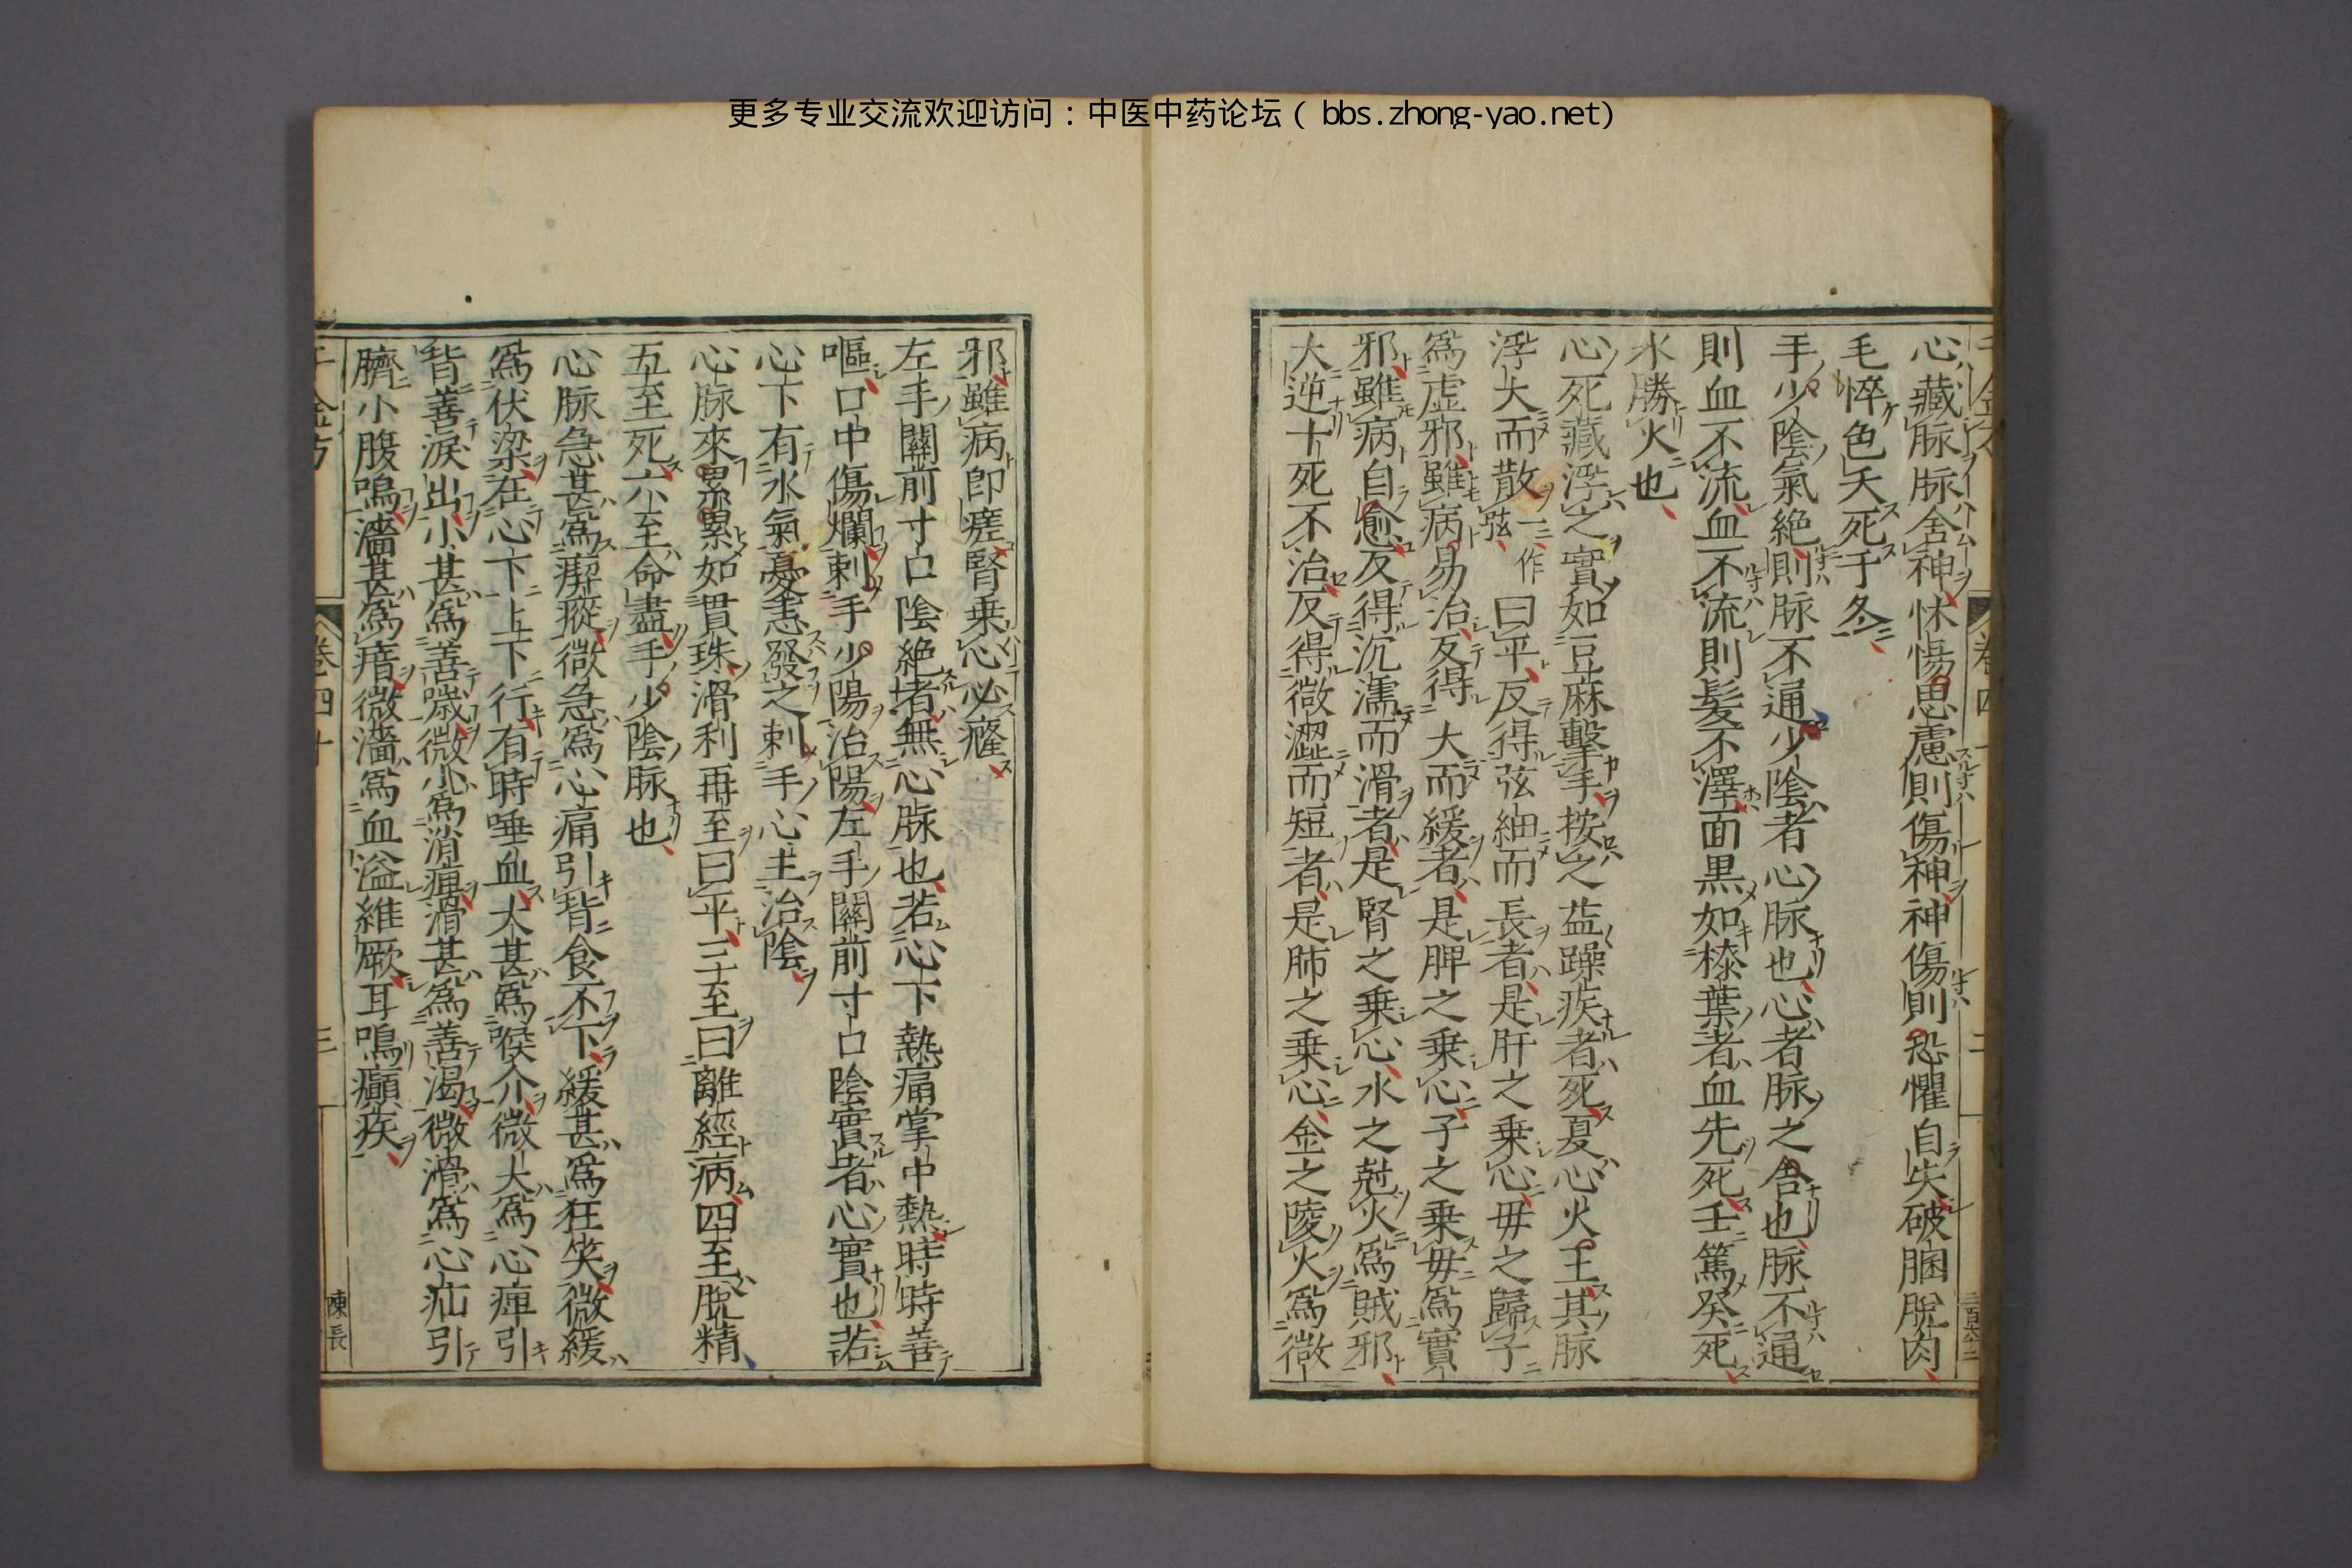 更多专业交流欢迎访问：中医中药论坛（ bbs.zhong-yao.net)
心藏脉脉舍神怵惕思慮則傷神神傷則恐懼自失破䐃脫肉
毛悴色夭死于冬
手少陰氣絶則脉不通少陰者心脉也心者脉之舍也脉不通
則血不流血不流則髮不澤面黒如𣾰葉者血先死壬篤癸死
水勝火也
心死藏浮之實如豆麻擊手按之益躁疾者死夏心火王其脉
浮大而散一作弦曰平反得弦細而長者是肝之乗心毋之歸子
爲虚邪雖病易治反得大而緩者是脾之乗心子之乗毋爲實
邪雖病自愈反得沉濡而滑者是腎之乗心水之尅火爲賊邪
大逆十死不治反得微澀而短者是肺之乗心金之陵火爲微
邪雖病即瘥腎乗心必癃
左手關前寸口陰絶者無心脉也若心下熱痛掌中熱時時善
嘔口中傷爛刺手少陽治陽左手關前寸口陰實者心實也若
心下有水氣憂恚發之刺手心主治陰
心脉來累累如貫珠滑利再至曰平三至曰離經病四至脫精
五至死六至命盡手少陰脉也
心脉急甚爲瘈瘲微急爲心痛引背食不下緩甚爲狂笑微緩
爲伏梁在心下上下行有時唾血大甚爲喉介微大爲心痺引
背善淚出小甚爲善噦微小爲消癉滑甚爲善渴微滑爲心疝引
臍小腹鳴濇甚爲瘖微濇爲血溢維厥耳鳴癲疾
千金方 卷四十 三 陳長